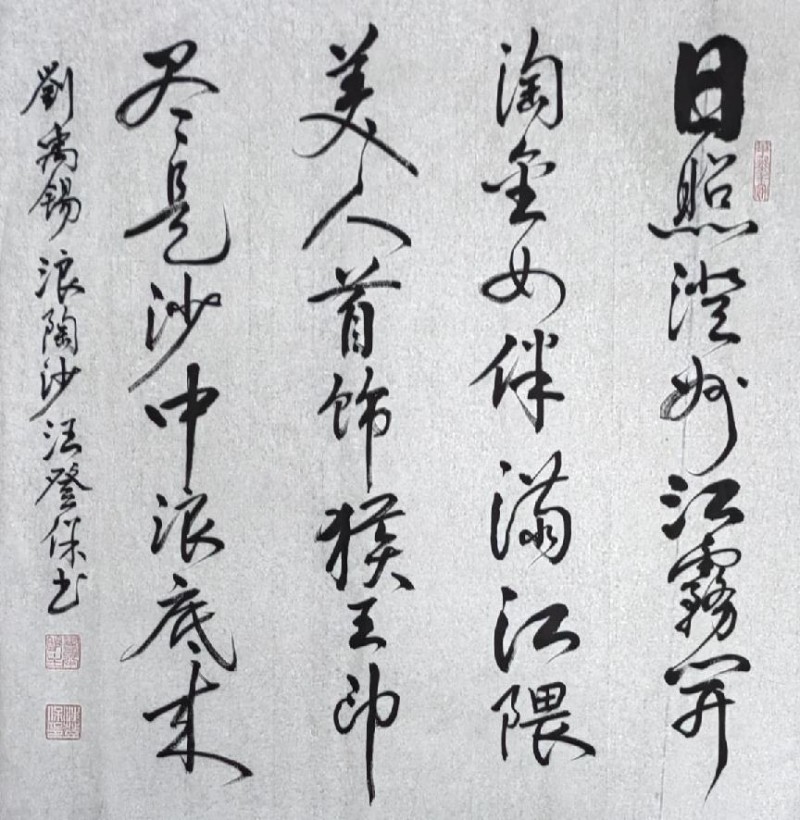 日照澄州江霧開
淘金女伴满江隈
美人首饰猴王印
尽是沙中浪底来
劉禹锡浪陶沙汪登保书